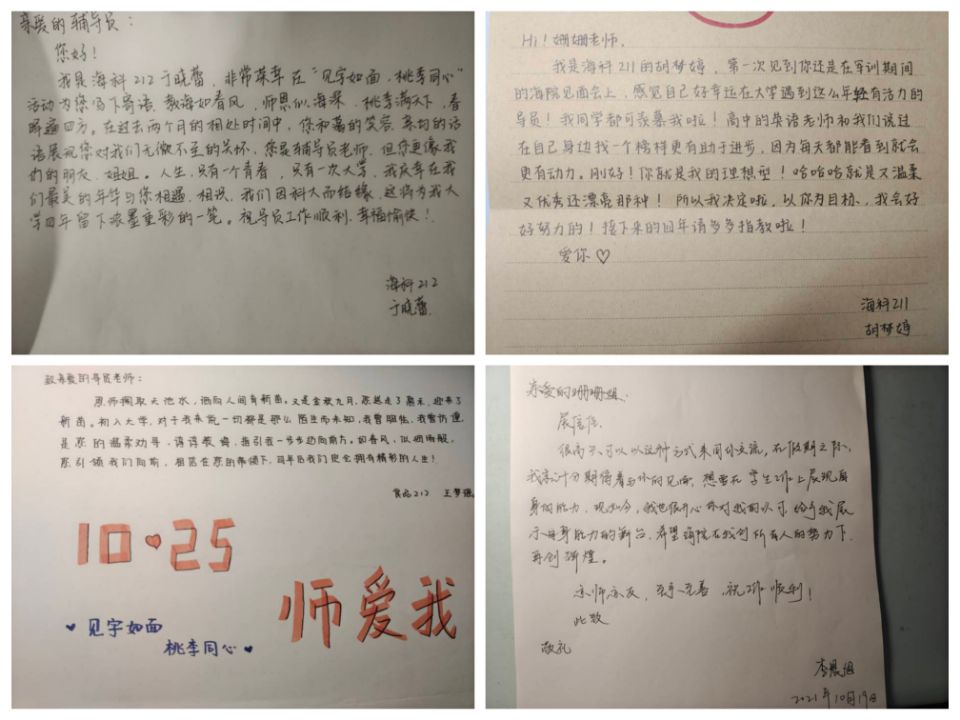 亲爱的辅导员：
您好！
我是海科212于晓蕾，非常荣幸在“见字如面，桃李同心”
活动为您写下寄语，教海如春风，师恩似海深，桃李满天下，春
晖遍四方。在过去两个月的相处时间中，您和蔼的笑容，亲切的话
语展现您对我们无微不至的关怀，您是辅导员老师，但您更像我
们的朋友、姐姐。人生，只有一个青春，只有一次大学，我庆幸在我
们最美的年华与您相遇、相识，我们因科大而结缘，这将为我大
学四年留下浓墨重彩的一笔。祝导员工作顺利，幸福愉快！
海科212
于晓蕾
Hi！姗姗老师，
我是海科211的胡梦婷，第一次见到你还是在军训期间
的海院见面会上，感觉自己好幸运在大学遇到这么年轻有活力的
导员！我同学都可羡慕我啦！高中的英语老师和我们说过
在自己身边找一个榜样更有助于进步，因为每天都能看到就会
更有动力。刚好！你就是我的理想型！哈哈哈就是又温柔
又优秀还漂亮那种！所以我决定啦，以你为目标，我会好
好努力的！接下来的四年请多多指教啦！
爱你♡
海科211
胡梦婷
致亲爱的导员老师：
恩师掬取天池水，洒向人间育新苗。又是金秋九月，您送走了
，迎来了
新苗。初入大学，对于我来说一切都是那么陌生而未知，我曾胆怯，我曾彷徨
是您的温柔劝导，谆谆教诲，指引我一步步迈向前方。如春风，似细雨般，
您引领我们向前，相信在您的带领下，四年后我们定会拥有精彩的人生！
食品212 王梦
10♥25
师爱我
♥ 见字如面
桃李同心 ♥
亲爱的姗姗姐：
展信佳
很高兴可以以这种方式来同你交流。在假期之际，
我就十分期待着与你的见面，想要在学生工作上展现自
身的能力，现如今，我也很开心你对我的认可，给予我展
示自身能力的舞台，希望海院在我们所有人的努力下
再创辉煌。
亦师亦友，至于至善，祝工作顺利！
此致
敬礼
李晨
2021年10月19日